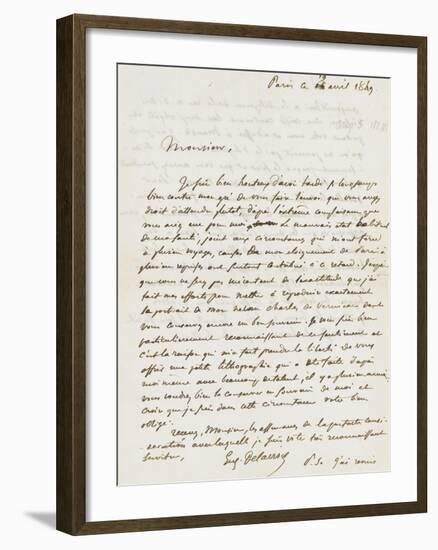 Paris ce avril 1849
Monsieur,
Je suis bien honteux d'avoir tardé si longtemps
bien contre mon gré de vous faire l'envoi que vous aviez
droit d'attendre plutôt, d'après l'extrême complaisance que
vous avez eue pour moi. Le mauvais état habituel
de ma santé, joint aux circonstances qui m'ont forcé
à plusieurs voyages, causes de mon éloignement de Paris à
plusieurs reprises ont surtout contribué à ce retard. J'espère
que vous ne serez pas mécontent de l'exactitude que j'ai
fait mes efforts pour mettre à reproduire exactement
le portrait de mon Charles de dont
vous conservez encore un bon souvenir. Je vous suis bien
particulièrement reconnaissant de ce sentiment et
c'est la raison qui m'a fait prendre la liberté de vous
offrir une petite lithographie qui a été faite d'après
moi même avec beaucoup de talent, il y a plusieurs années.
vous voudrez bien la conserver en souvenir de moi et
croire que je suis dans cette circonstance votre bien
obligé.
Recevez, Monsieur, les assurances de la parfaite consi-
dération avec laquelle je suis votre reconnaissant
serviteur,
Eug. Delacroix P.S. j'ai remis